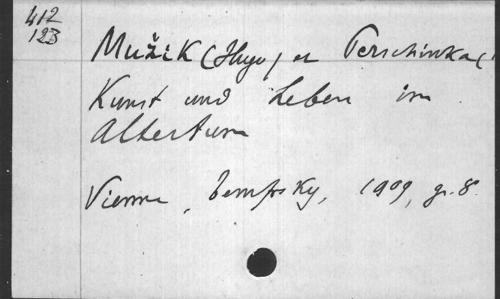 412
123
Mužik (Hugo) et Perschinka (
Kunst und Leben im
Altertum
Vienne, Tempsky, 1909, gr. 8°